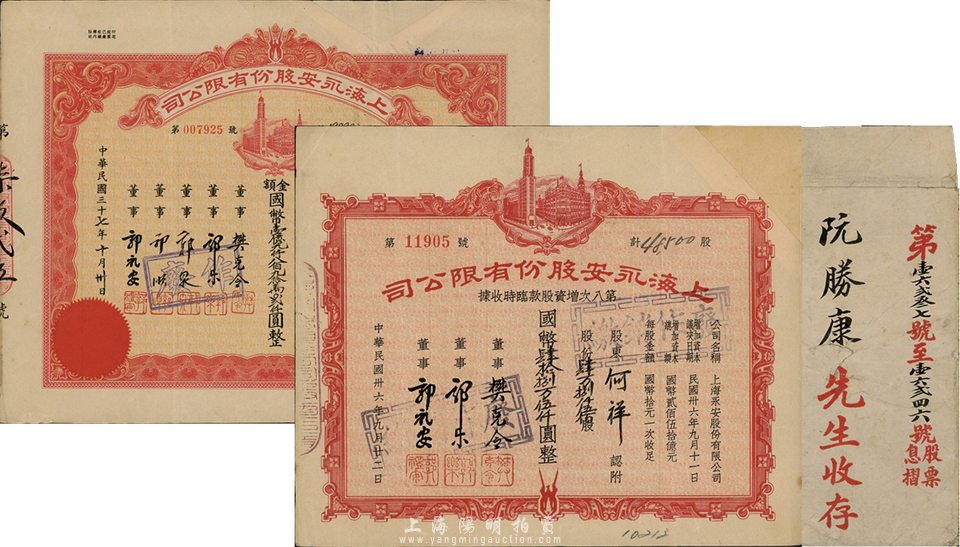 上海永安股份有限公司
第 007925 號
中華民國三十七年十月卅日
董事
董事
董事
董事
董事
樊克令
郭樂
郭泉
郭順
郭礼安
金額國幣
圓整
第
號
計 48,500 股
第 11905 號
上海永安股份有限公司
第八次增資股款臨時收據
公司名稱 上海永安股份有限公司
增加資本議決日期 民國卅六年九月十一日
增加資本總額 國幣貳佰伍拾億元
每股金額 國幣拾元一次收足
股東 何祥 認附
股份肆萬捌仟伍佰股
國幣肆拾捌万伍仟圓整
董事 樊克令
董事 郭樂
董事 郭礼安
中華民國卅六年九月廿二日
10212
第壹六貳叁七號至壹六貳四六號股票息摺
阮勝康先生收存
上海陽明拍賣
www.yangmingauction.com